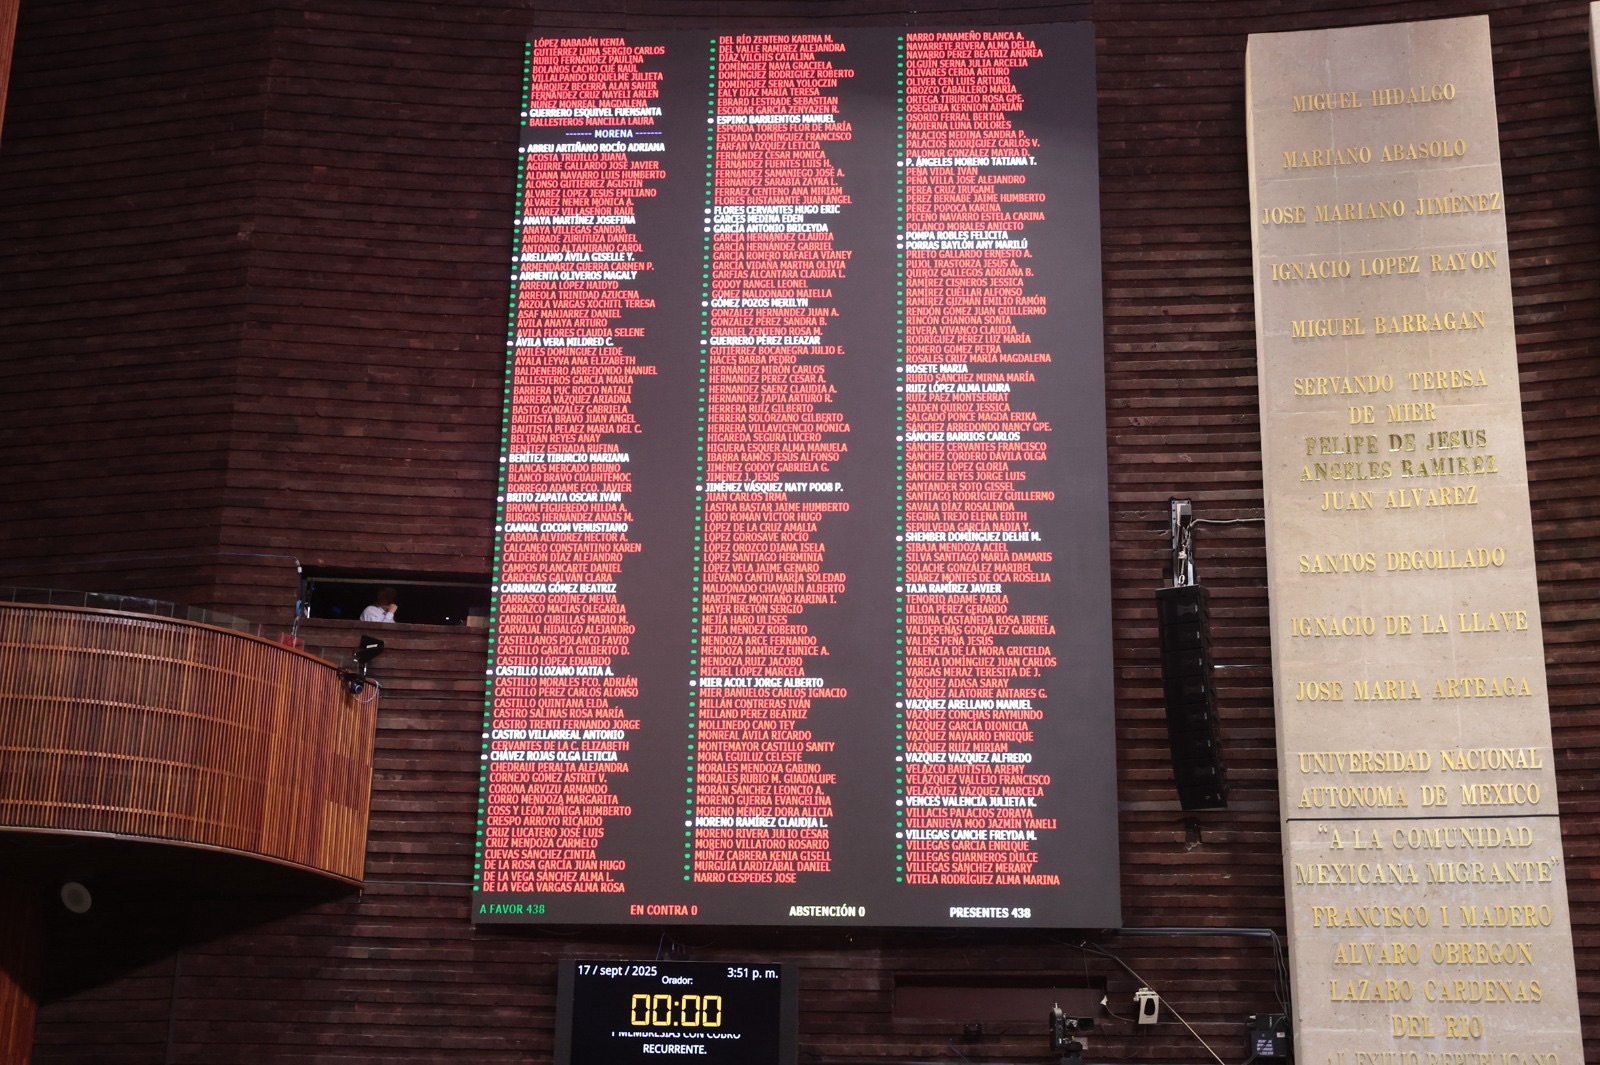 LÓPEZ RABADÁN KENIA
GUTIÉRREZ LUNA SERGIO CARLOS
RUBIO FERNÁNDEZ PAULINA
BOLAÑOS CACHO CUÉ RAÚL
VILLALPANDO RIQUELME JULIETA
MÁRQUEZ BECERRA ALAN SAHIR
FERNÁNDEZ CRUZ NAYELI ARLEN
NÚÑEZ MONREAL MAGDALENA
GUERRERO ESQUIVEL FUENSANTA
BALLESTEROS MANCILLA LAURA
------- MORENA -------
ABREU ARTIÑANO ROCÍO ADRIANA
ACOSTA TRUJILLO JUANA
AGUIRRE GALLARDO JOSÉ JAVIER
ALDANA NAVARRO LUIS HUMBERTO
ALONSO GUTIÉRREZ AGUSTÍN
ÁLVAREZ LÓPEZ JESÚS EMILIANO
ÁLVAREZ NEMER MÓNICA A.
ÁLVAREZ VILLASEÑOR RAÚL
ANAYA MARTÍNEZ JOSEFINA
ANAYA VILLEGAS SANDRA
ANDRADE ZURUTUZA DANIEL
ANTONIO ALTAMIRANO CAROL
ARELLANO ÁVILA GISELLE Y.
ARMENDÁRIZ GUERRA CARMEN P.
ARMENTA OLIVEROS MAGALY
ARREOLA LÓPEZ HAIDYD
ARREOLA TRINIDAD AZUCENA
ARZOLA VARGAS XÓCHITL TERESA
ASAF MANJARREZ DANIEL
ÁVILA ANAYA ARTURO
ÁVILA FLORES CLAUDIA SELENE
ÁVILA VERA MILDRED C.
AVILÉS DOMÍNGUEZ LEIDE
AYALA LEYVA ANA ELIZABETH
BALDENEBRO ARREDONDO MANUEL
BALLESTEROS GARCÍA MARÍA
BARRERA PUC ROCÍO NATALI
BARRERA VÁZQUEZ ARIADNA
BASTO GONZÁLEZ GABRIELA
BAUTISTA BRAVO JUAN ÁNGEL
BAUTISTA PELÁEZ MARÍA DEL C.
BELTRÁN REYES ANAY
BENÍTEZ ESTRADA RUFINA
BENÍTEZ TIBURCIO MARIANA
BLANCAS MERCADO BRUNO
BLANCO BRAVO CUAUHTÉMOC
BORREGO ADAME FCO. JAVIER
BRITO ZAPATA OSCAR IVÁN
BROWN FIGUEREDO HILDA A.
BURGOS HERNÁNDEZ ANAIS M.
CAAMAL COCOM VENUSTIANO
CABADA ALVIDREZ HÉCTOR A.
CALCANEO CONSTANTINO KAREN
CALDERÓN DÍAZ ALEJANDRO
CAMPOS PLANCARTE DANIEL
CÁRDENAS GALVÁN CLARA
CARRANZA GÓMEZ BEATRIZ
CARRASCO GODÍNEZ MELVA
CARRAZCO MACÍAS OLEGARIA
CARRILLO CUBILLAS MARIO M.
CARVAJAL HIDALGO ALEJANDRO
CASTELLANOS POLANCO FAVIO
CASTILLO GARCÍA GILBERTO D.
CASTILLO LÓPEZ EDUARDO
CASTILLO LOZANO KATIA A.
CASTILLO MORALES FCO. ADRIÁN
CASTILLO PÉREZ CARLOS ALONSO
CASTILLO QUINTANA ELDA
CASTRO SALINAS ROSA MARÍA
CASTRO TRENTI FERNANDO JORGE
CASTRO VILLARREAL ANTONIO
CERVANTES DE LA C. ELIZABETH
CHÁVEZ ROJAS OLGA LETICIA
CHEDRAUI PERALTA ALEJANDRA
CORNEJO GÓMEZ ASTRIT V.
CORONA ARVIZU ARMANDO
CORRO MENDOZA MARGARITA
COSS Y LEÓN ZÚÑIGA HUMBERTO
CRESPO ARROYO RICARDO
CRUZ LUCATERO JOSÉ LUIS
CRUZ MENDOZA CARMELO
CUEVAS SÁNCHEZ CINTIA
DE LA ROSA GARCÍA JUAN HUGO
DE LA VEGA SÁNCHEZ ALMA L.
DE LA VEGA VARGAS ALMA ROSA
DEL RÍO ZENTENO KARINA M.
DEL VALLE RAMÍREZ ALEJANDRA
DÍAZ VILCHIS CATALINA
DOMÍNGUEZ NAVA GRACIELA
DOMÍNGUEZ RODRÍGUEZ ROBERTO
DOMÍNGUEZ SERNA YOLOCZIN
EALY DÍAZ MARÍA TERESA
EBRARD LESTRADE SEBASTIAN
ESCOBAR GARCÍA ZENYAZEN R.
ESPINO BARRIENTOS MANUEL
ESPONDA TORRES FLOR DE MARÍA
ESTRADA DOMÍNGUEZ FRANCISCO
FARFÁN VÁZQUEZ LETICIA
FERNÁNDEZ CÉSAR MÓNICA
FERNÁNDEZ FUENTES LUIS H.
FERNÁNDEZ SAMANIEGO JOSÉ A.
FERNÁNDEZ SARABIA ZAYRA L.
FERRAEZ CENTENO ANA MIRIAM
FLORES BUSTAMANTE JUAN ÁNGEL
FLORES CERVANTES HUGO ERIC
GARCÉS MEDINA EDEN
GARCÍA ANTONIO BRICEYDA
GARCÍA HERNÁNDEZ CLAUDIA
GARCÍA HERNÁNDEZ GABRIEL
GARCÍA ROMERO RAFAELA VIANEY
GARCÍA VIDAÑA MARTHA OLIVIA
GARFIAS ALCÁNTARA CLAUDIA L.
GODOY RANGEL LEONEL
GÓMEZ MALDONADO MAIELLA
GÓMEZ POZOS MERILYN
GONZÁLEZ HERNÁNDEZ JUAN A.
GONZÁLEZ PÉREZ SANDRA B.
GRANIEL ZENTENO ROSA M.
GUERRERO PÉREZ ELEAZAR
GUTIÉRREZ BOCANEGRA JULIO E.
HACES BARBA PEDRO
HERNÁNDEZ MIRÓN CARLOS
HERNÁNDEZ PÉREZ CESAR A.
HERNÁNDEZ SÁENZ CLAUDIA A.
HERNÁNDEZ TAPIA ARTURO R.
HERRERA RUÍZ GILBERTO
HERRERA SOLÓRZANO GILBERTO
HERRERA VILLAVICENCIO MÓNICA
HIGAREDA SEGURA LUCERO
HIGUERA ESQUER ALMA MANUELA
IBARRA RAMOS JESÚS ALFONSO
JIMÉNEZ GODOY GABRIELA G.
JIMÉNEZ J. JESÚS
JIMÉNEZ VÁSQUEZ NATY POOB P.
JUAN CARLOS IRMA
LASTRA BASTAR JAIME HUMBERTO
LOBO ROMÁN VÍCTOR HUGO
LÓPEZ DE LA CRUZ AMALIA
LÓPEZ GOROSAVE ROCÍO
LÓPEZ OROZCO DIANA ISELA
LÓPEZ SANTIAGO HERMINIA
LÓPEZ VELA JAIME GENARO
LUÉVANO CANTÚ MARÍA SOLEDAD
MALDONADO CHAVARÍN ALBERTO
MARTÍNEZ MONTAÑO KARINA I.
MAYER BRETÓN SERGIO
MEJÍA HARO ULISES
MEJÍA MÉNDEZ ROBERTO
MENDOZA ARCE FERNANDO
MENDOZA RAMÍREZ EUNICE A.
MENDOZA RUIZ JACOBO
MICHEL LÓPEZ MARCELA
MIER ACOLT JORGE ALBERTO
MIER BAÑUELOS CARLOS IGNACIO
MILLÁN CONTRERAS IVÁN
MILLAND PÉREZ BEATRIZ
MOLLINEDO CANO TEY
MONREAL ÁVILA RICARDO
MONTEMAYOR CASTILLO SANTY
MORA EGUILUZ CELESTE
MORALES MENDOZA GABINO
MORALES RUBIO M. GUADALUPE
MORÁN SÁNCHEZ LEONCIO A.
MORENO GUERRA EVANGELINA
MORENO MÉNDEZ DORA ALICIA
MORENO RAMÍREZ CLAUDIA L.
MORENO RIVERA JULIO CÉSAR
MORENO VILLATORO ROSARIO
MUÑIZ CABRERA KENIA GISELL
MURGUÍA LARDIZÁBAL DANIEL
NARRO CÉSPEDES JOSÉ
NARRO PANAMEÑO BLANCA A.
NAVARRETE RIVERA ALMA DELIA
NAVARRO PÉREZ BEATRIZ ANDREA
OLGUÍN SERNA JULIA ARCELIA
OLIVARES CERDA ARTURO
OLIVER CEN LUIS ARTURO
OROZCO CABALLERO MARÍA
ORTEGA TIBURCIO ROSA GPE.
OSEGUERA KERNION ADRIÁN
OSORIO FERRAL BERTHA
PADIERNA LUNA DOLORES
PALACIOS MEDINA SANDRA P.
PALACIOS RODRÍGUEZ CARLOS V.
PALOMAR GONZÁLEZ MAYRA D.
P. ÁNGELES MORENO TATIANA T.
PEÑA VIDAL IVÁN
PEÑA VILLA JOSÉ ALEJANDRO
PEREA CRUZ IRUGAMI
PÉREZ BERNABE JAIME HUMBERTO
PÉREZ POPOCA KARINA
PICENO NAVARRO ESTELA CARINA
POLANCO MORALES ANICETO
POMPA ROBLES FELICITA
PORRAS BAYLÓN ANY MARILÚ
PRIETO GALLARDO ERNESTO A.
PUJOL IRASTORZA JESÚS A.
QUIROZ GALLEGOS ADRIANA B.
RAMÍREZ CISNEROS JESSICA
RAMÍREZ CUÉLLAR ALFONSO
RAMÍREZ GUZMÁN EMILIO RAMÓN
RENDÓN GÓMEZ JUAN GUILLERMO
RINCÓN CHANONA SONIA
RIVERA VIVANCO CLAUDIA
RODRÍGUEZ PÉREZ LUZ MARÍA
ROMERO GÓMEZ PETRA
ROSALES CRUZ MARÍA MAGDALENA
ROSETE MARIA
RUBIO SÁNCHEZ MIRNA MARÍA
RUIZ LÓPEZ ALMA LAURA
RUIZ PÁEZ MONTSERRAT
SAIDEN QUIROZ JESSICA
SALGADO PONCE MAGDA ERIKA
SÁNCHEZ ARREDONDO NANCY GPE.
SÁNCHEZ BARRIOS CARLOS
SÁNCHEZ CERVANTES FRANCISCO
SÁNCHEZ CORDERO DÁVILA OLGA
SÁNCHEZ LÓPEZ GLORIA
SÁNCHEZ REYES JORGE LUIS
SANTANDER SOTO GISSEL
SANTIAGO RODRÍGUEZ GUILLERMO
SAVALA DÍAZ ROSALINDA
SEGURA TREJO ELENA EDITH
SEPÚLVEDA GARCÍA NADIA Y.
SHEMBER DOMÍNGUEZ DELHI M.
SIBAJA MENDOZA ACIEL
SILVA SANTIAGO MARÍA DAMARIS
SOLACHE GONZÁLEZ MARIBEL
SUÁREZ MONTES DE OCA ROSELIA
TAJA RAMÍREZ JAVIER
TENORIO ADAME PAOLA
ULLOA PÉREZ GERARDO
URBINA CASTAÑEDA ROSA IRENE
VALDEPEÑAS GONZÁLEZ GABRIELA
VALDÉS PEÑA JESÚS
VALENCIA DE LA MORA GRICELDA
VARELA DOMÍNGUEZ JUAN CARLOS
VARGAS MERAZ TERESITA DE J.
VÁZQUEZ ADASA SARAY
VÁZQUEZ ALATORRE ANTARES G.
VÁZQUEZ ARELLANO MANUEL
VÁZQUEZ CONCHAS RAYMUNDO
VÁZQUEZ GARCÍA DIONICIA
VÁZQUEZ NAVARRO ENRIQUE
VÁZQUEZ RUIZ MIRIAM
VÁZQUEZ VÁZQUEZ ALFREDO
VELAZCO BAUTISTA AREMY
VELÁZQUEZ VALLEJO FRANCISCO
VELÁZQUEZ VÁZQUEZ MARCELA
VENCES VALENCIA JULIETA K.
VILLACIS PALACIOS ZORAYA
VILLANUEVA MOO JAZMÍN YANELI
VILLEGAS CANCHE FREYDA M.
VILLEGAS GARCÍA ENRIQUE
VILLEGAS GUARNEROS DULCE
VILLEGAS SÁNCHEZ MERARY
VITELA RODRÍGUEZ ALMA MARINA
A FAVOR 438
EN CONTRA 0
ABSTENCIÓN 0
PRESENTES 438
17 / sept / 2025
3:51 p. m.
Orador:
00:00
Y MEMBRESÍAS CON COBRO
RECURRENTE.
MIGUEL HIDALGO
MARIANO ABASOLO
JOSE MARIANO JIMENEZ
IGNACIO LOPEZ RAYON
MIGUEL BARRAGAN
SERVANDO TERESA
DE MIER
FELIPE DE JESUS
ANGELES RAMIREZ
JUAN ALVAREZ
SANTOS DEGOLLADO
IGNACIO DE LA LLAVE
JOSE MARIA ARTEAGA
UNIVERSIDAD NACIONAL
AUTONOMA DE MEXICO
"A LA COMUNIDAD
MEXICANA MIGRANTE"
FRANCISCO I MADERO
ALVARO OBREGON
LAZARO CARDENAS
DEL RIO
AL EXILIO REPUBLICANO